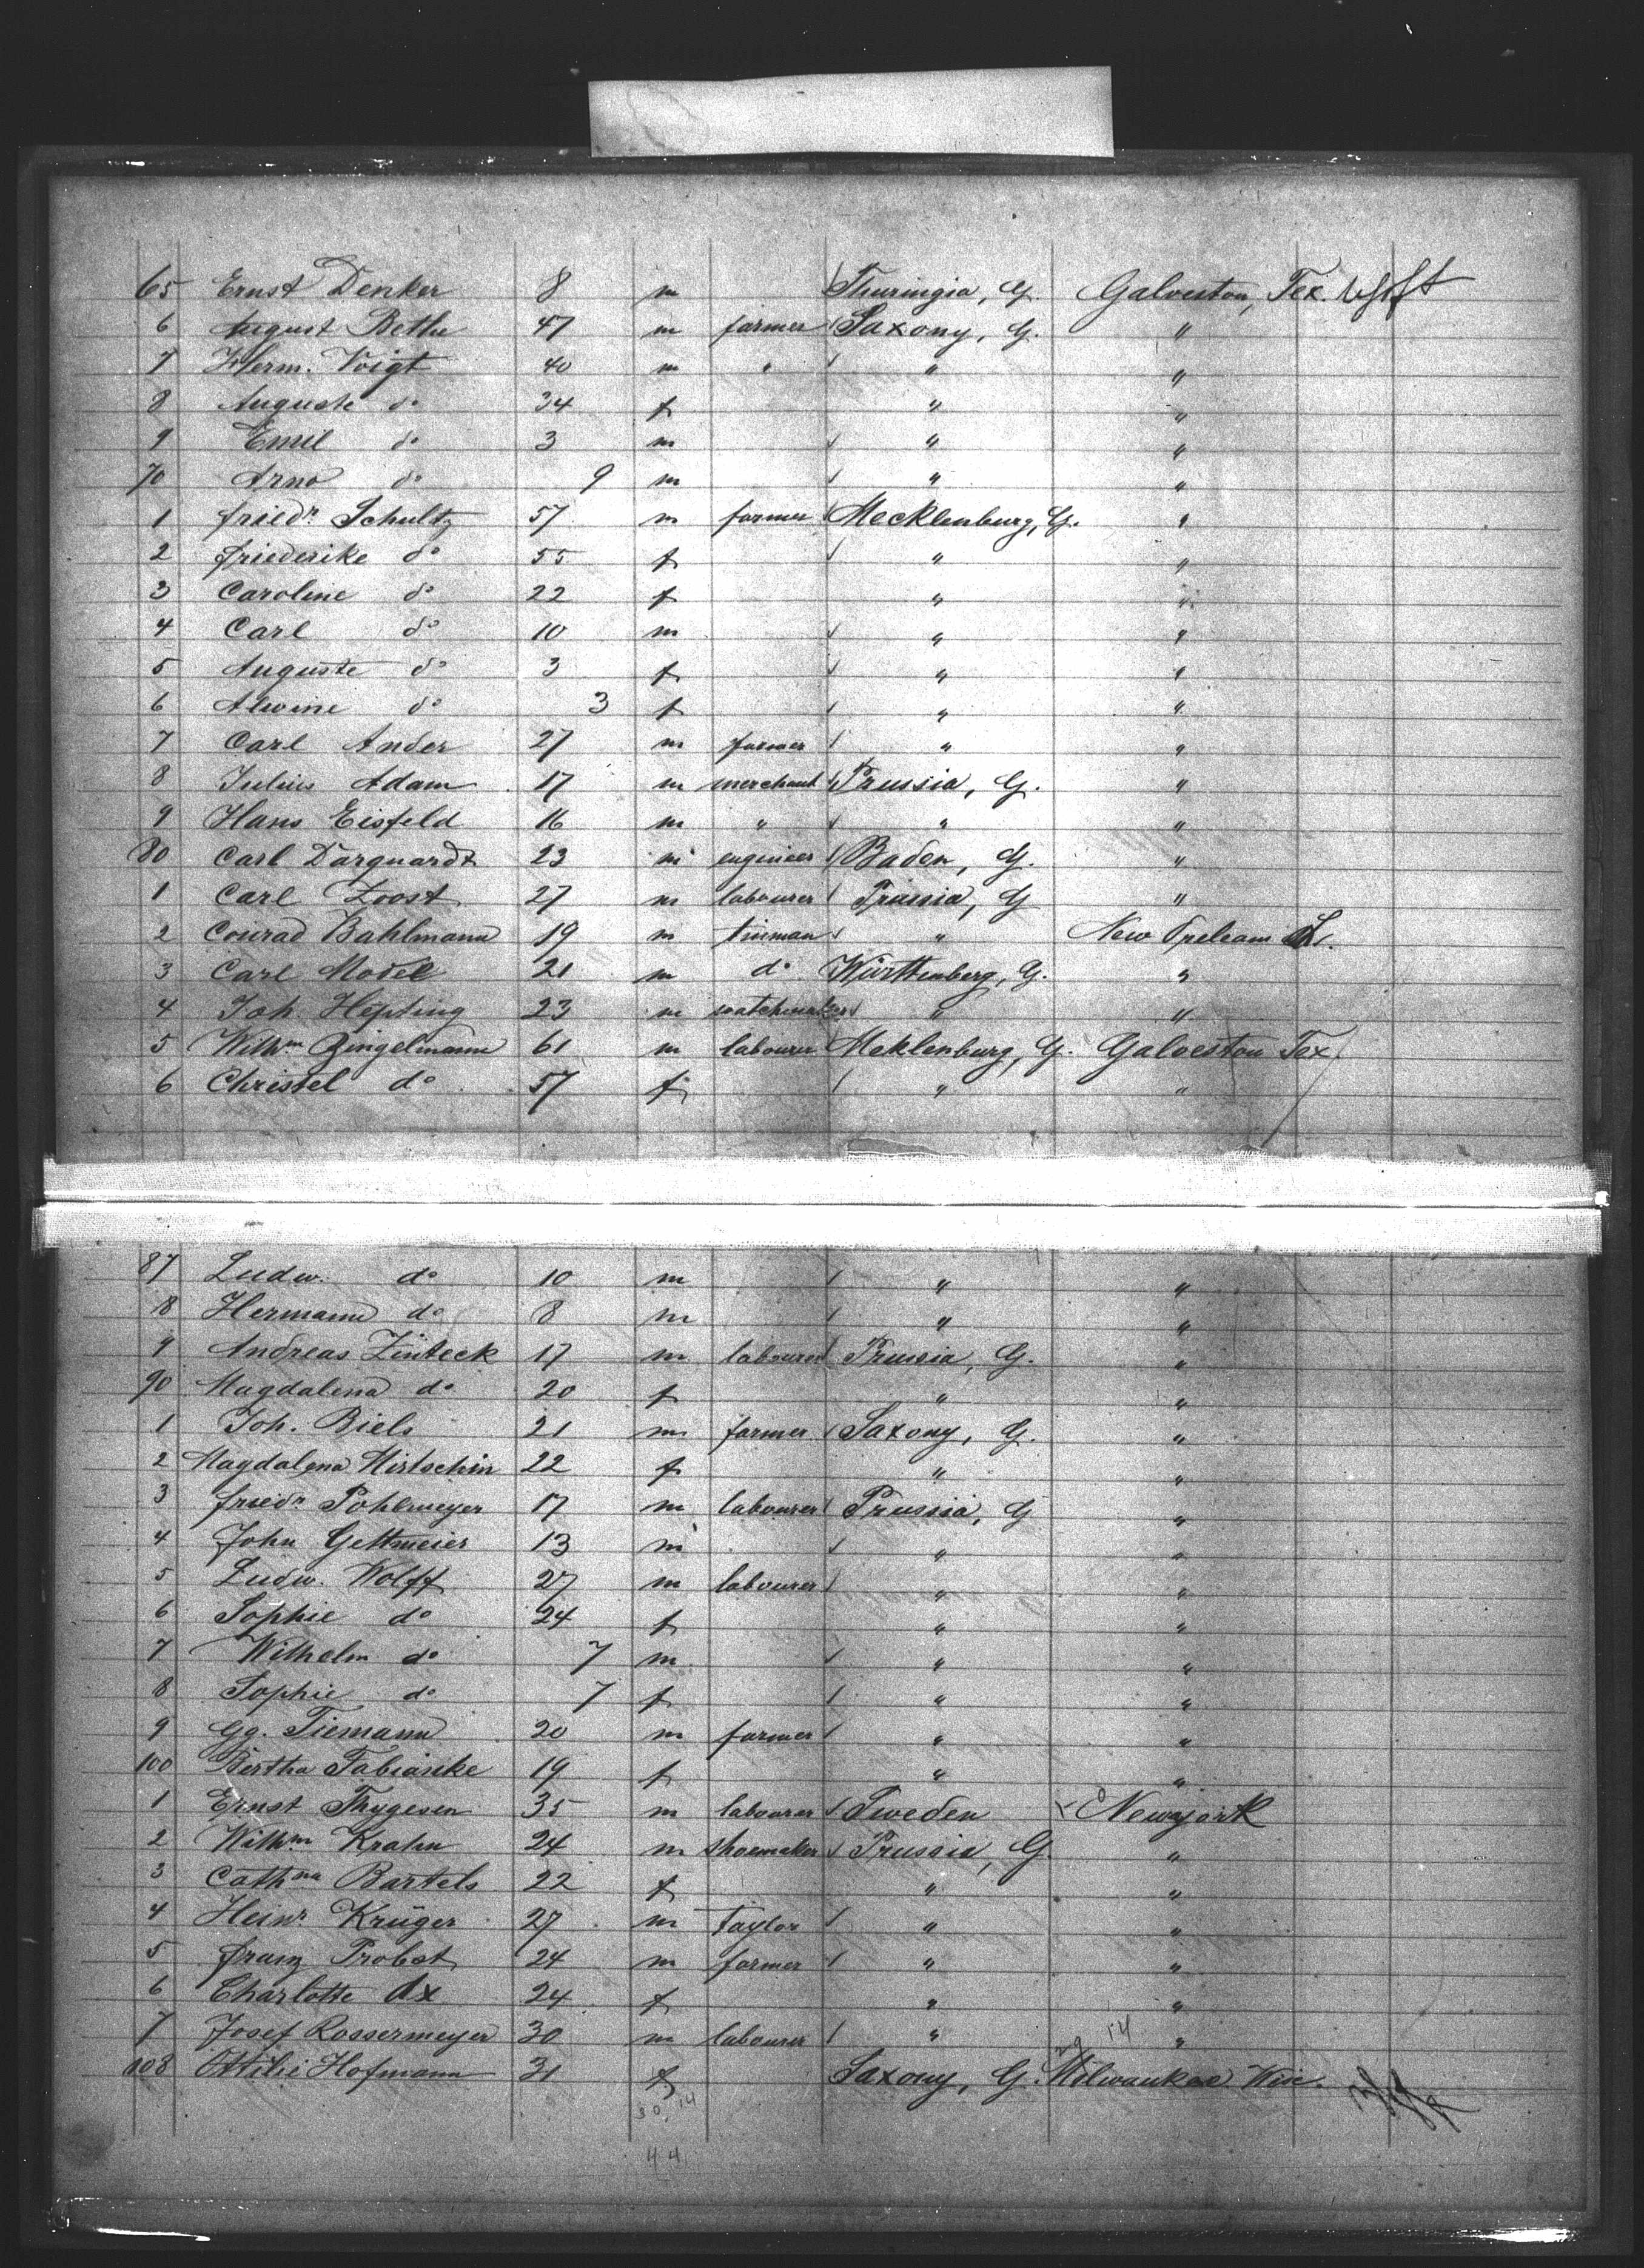 65 Ernst Denker 8 m Thuringia, G. Galveston, Tex.
6 August Bethe 47 m farmer Saxony, G. "
7 Herm. Voigt 40 m " " "
8 Auguste do 34 f " "
9 Emil do 3 m " "
70 Arno do 9 m " "
1 Friedr. Schultz 57 m farmer Mecklenburg, G. "
2 Friederike do 55 f " "
3 Caroline do 22 f " "
4 Carl do 10 m " "
5 Auguste do 3 f " "
6 Alwine do 3 f " "
7 Carl Ander 27 m farmer " "
8 Julius Adam 17 m merchant Prussia, G. "
9 Hans Eisfeld 16 m " " "
80 Carl Darquardt 23 m engineer Baden, G. "
1 Carl Zoost 27 m labourer Prussia, G "
2 Conrad Bahlmann 19 m tinman " New Orleans
3 Carl Model 21 m do Württenberg, G. "
4 Joh. Hepting 23 m watchmaker " "
5 Wilhm Bingelmann 61 m labourer Meklenburg, G. Galveston Tex.
6 Christel do 57 f " "
87 Ludw. do 10 m " "
8 Hermann do 8 m " "
9 Andreas Zinteck 17 m labourer Prussia, G. "
90 Magdalena do 20 f " "
1 Joh. Biels 21 m farmer Saxony, G. "
2 Magdalena Mirtschin 22 f " "
3 Friedr Pohlmeyer 17 m labourer Prussia, G "
4 John Gettmeier 13 m " "
5 Ludw. Wolff 27 m labourer " "
6 Sophie do 24 f " "
7 Wilhelm do 7 m " "
8 Sophie do 7 f " "
9 Gg. Tiemann 20 m farmer " "
100 Bertha Fabianke 19 f " "
1 Ernst Thygesen 35 m labourer Sweden Newyork
2 Wilhm Krahn 24 m shoemaker Prussia, G "
3 Cathna Bartels 22 f " "
4 Heinr Krüger 27 m taylor " "
5 Franz Probst 24 m farmer " "
6 Charlotte Ax 24 f " "
7 Josef Rossermeyer 30 m labourer " "
14
108 Ottilie Hofmann 31 f Saxony, G. Milwaukee Wisc.
30 14
44